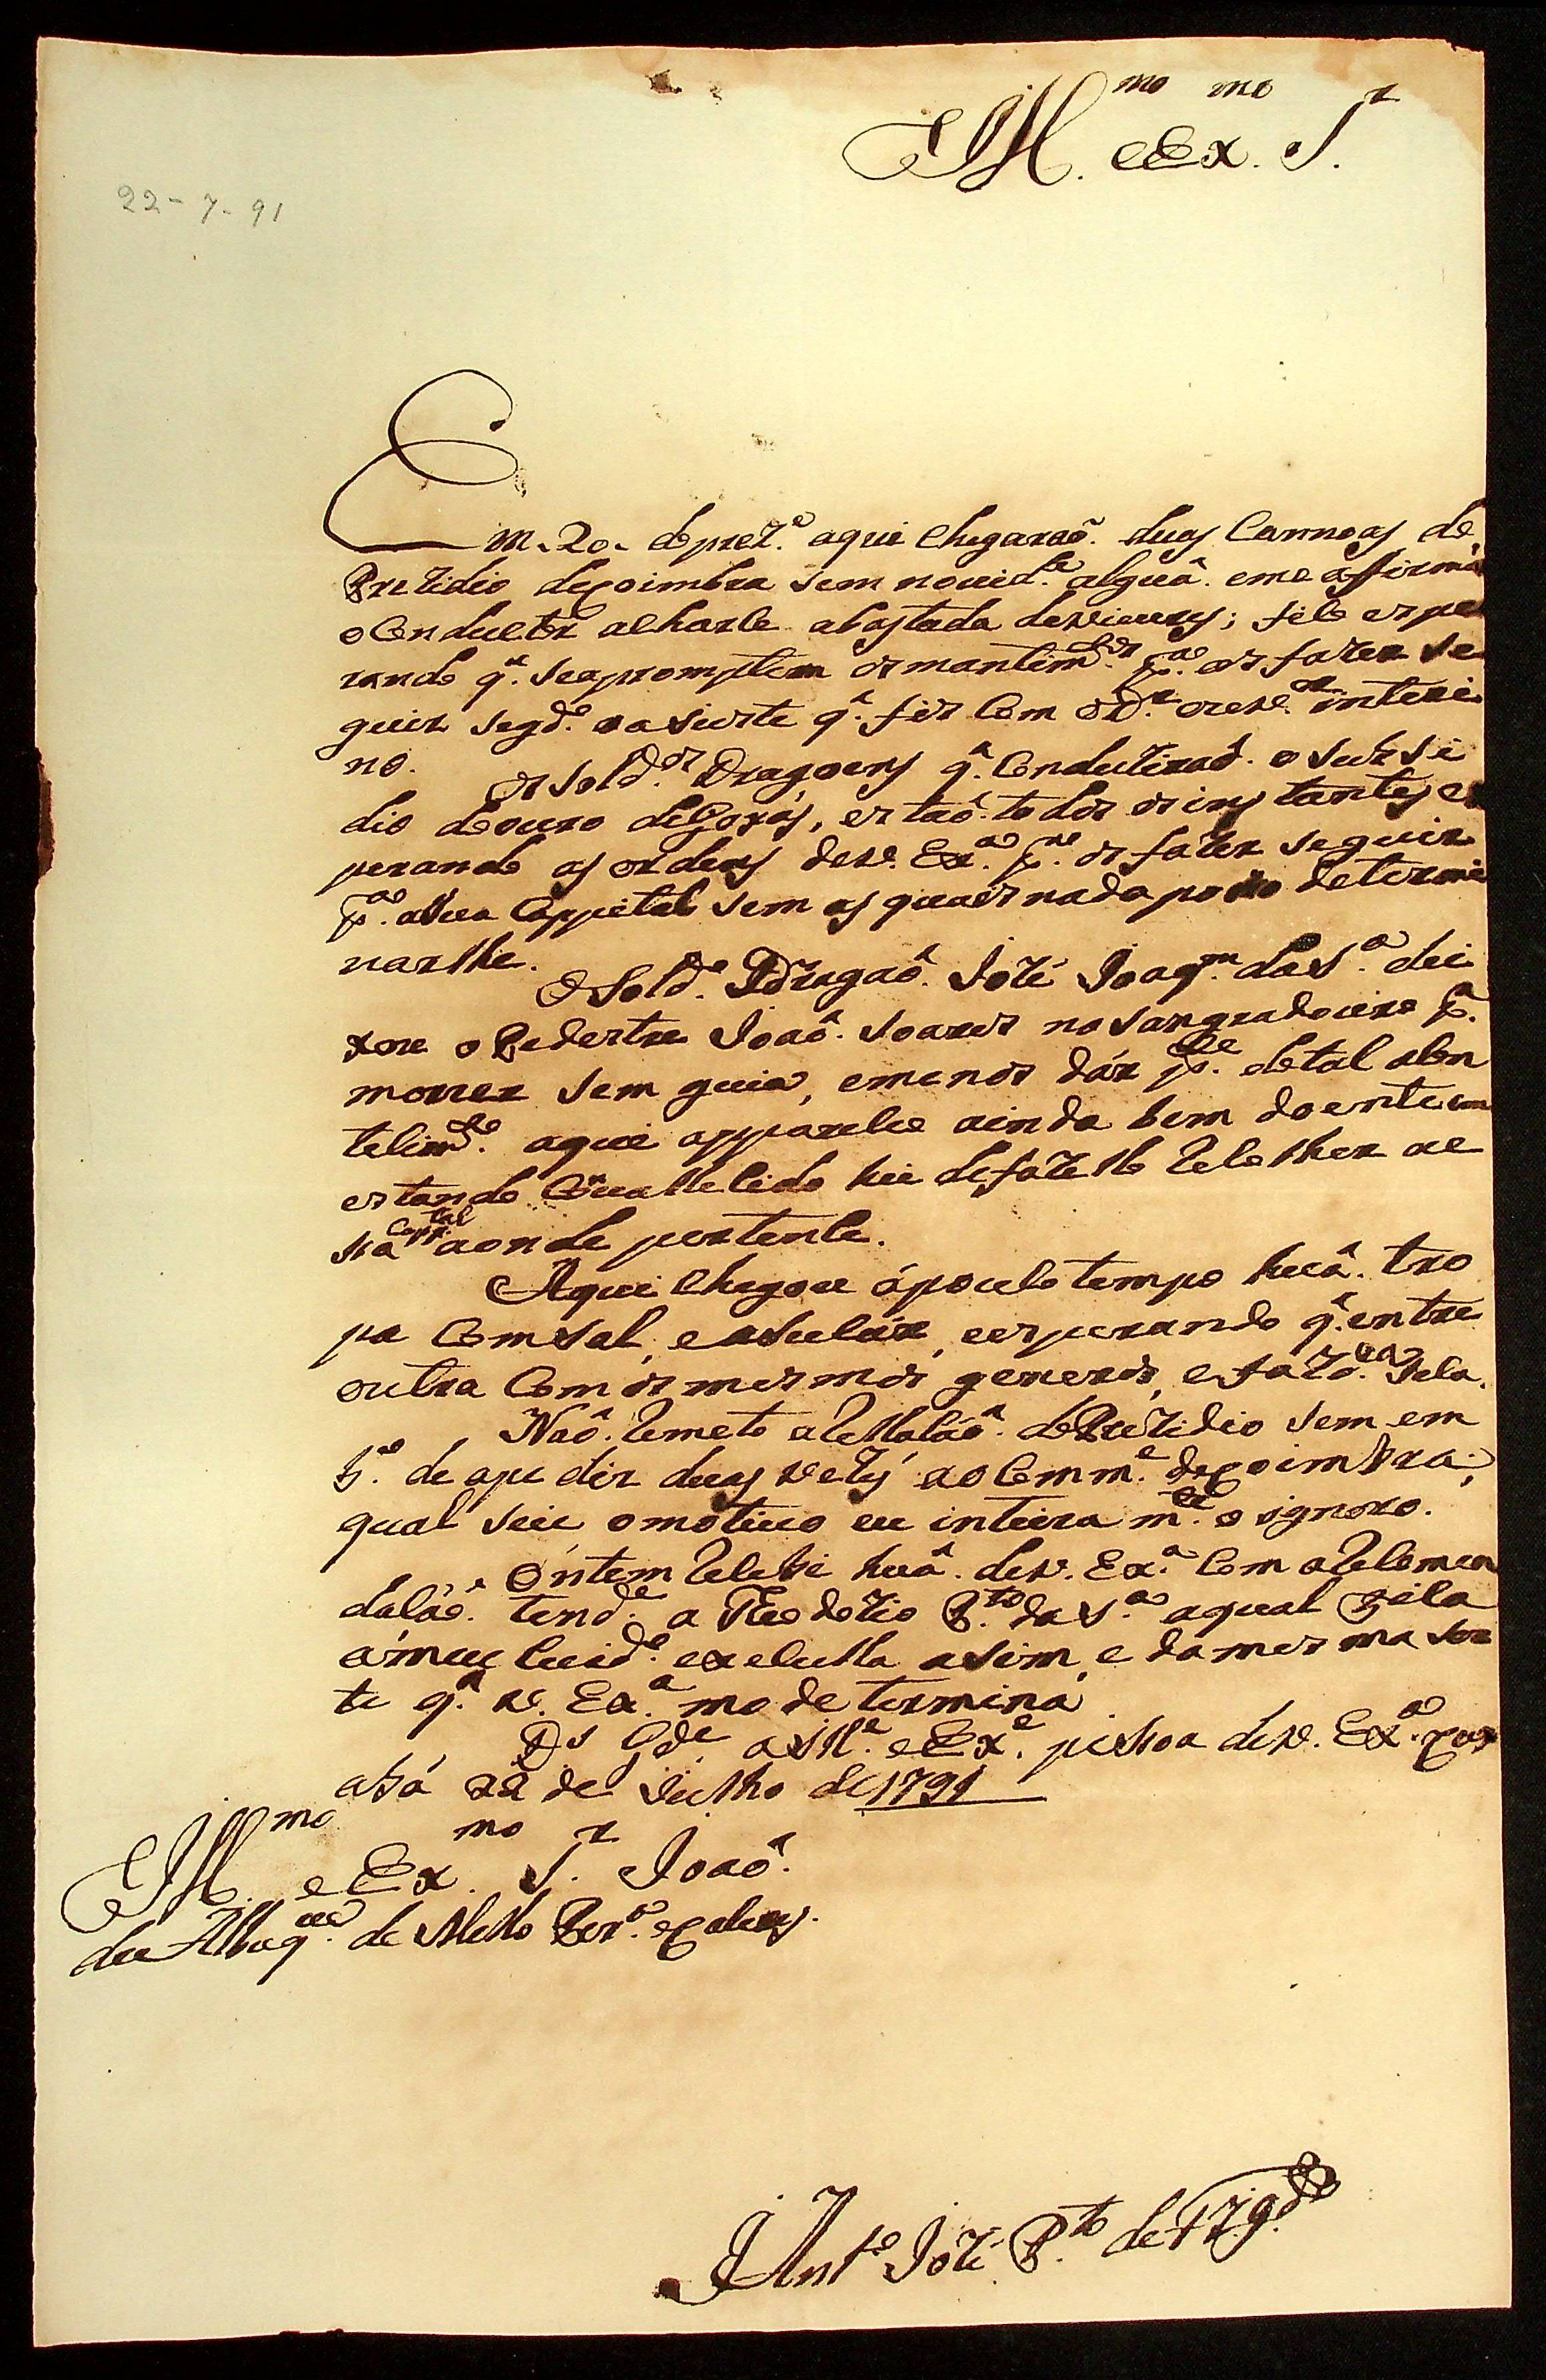 Ill.mo eEx.mo S.r
22-7-91
Em 20 do prez.e aqui chegaraõ duas Cannoas do
Prezidio deCoimbra sem novid.e alguã. eme affirma
oConductor acharce abastada deviveres; fico espe
rando q.̃ seapromptem os mantim.tos p.a os fazer se
guir segd.o oasiurte q.̃ fis Com oD.r interi
no. os Sold.os Dragoens q.̃ Conduziraõ o subsi
dio deouro deGoyás, estaõ todos os instantes es
perando as ordens deV. Ex.a p.a os fazer seguir
p.a aSua Cappital sem as quais nada posso determi
narlhe.
O Sold.o Dragaõ José Joaq.m daS.a dei
xou o Pedestre Joaõ Soares nosangradouro p.a
morrer sem guia, emenos dár p.te detal acon
tecim.to aqui apparece ainda bem doente em
estando Convallecido hei defazello recolher ae
ssa Capp.tal aonde pertence.
Aqui chegou ápouco tempo huã tro
pa Comsal, easucár, eesperando q.̃ entre
outra Com os mesmos generos, e faz.as Seca.
Naõ remeto aRellaçaõ doPrezidio sem em
b.o de a pe dir duas vezes ao Comm.e deCoimbra,
qual seie omotivo eu inteira m.te o ignoro.
Ontem recebi huã deV. Ex.a Com aRecomen
daçaõ tend.e a Theodozio P.to daS.a aqual fica
ámeu cuid.o executalla asim, e damesma sor
te q.̃ V. Ex.a mo determina
D.s G.de aIll.e eEx.e pessoa deV. Ex.a Cuy
abá 22 de Julho de 1791
Ill.mo eEx.mo S.r Joaõ
de Albuq.que de Mello Per.a eCaceres.
Ant.o José P.to de Fig.do